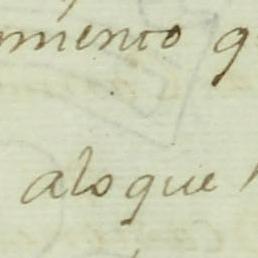 mento q
alo que